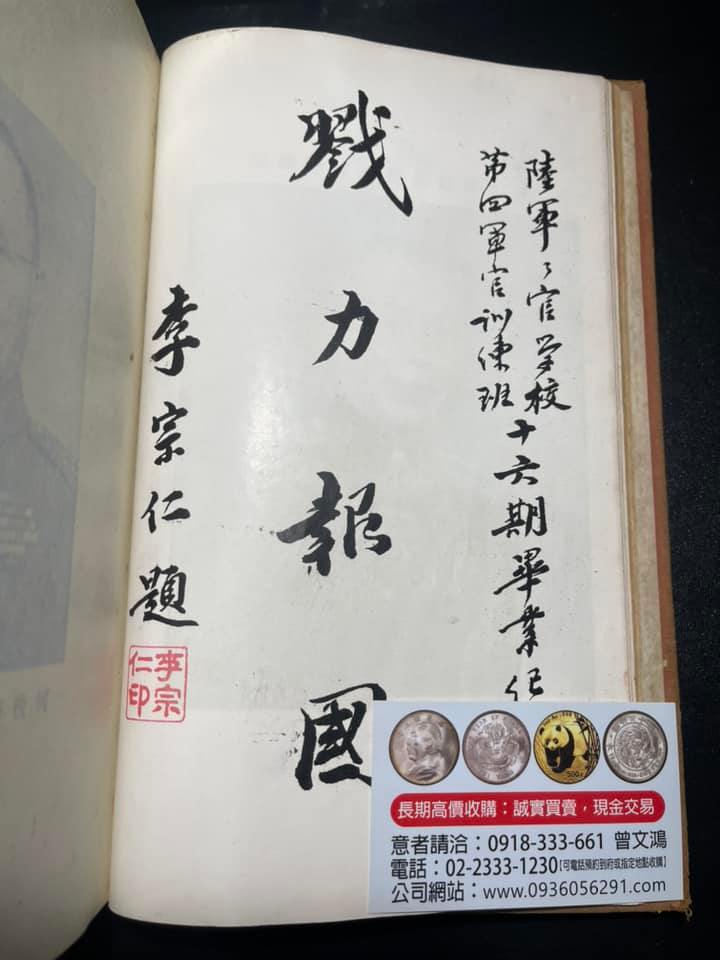 陸軍々官学校
第四軍官训练班
十六期畢業纪
戮力報國
李宗仁題
李宗
仁印
長期高價收購：誠實買賣，現金交易
意者請洽：0918-333-661 曾文鴻
電話：02-2333-1230【可電話預約到府或指定地點收購】
公司網站：www.0936056291.com